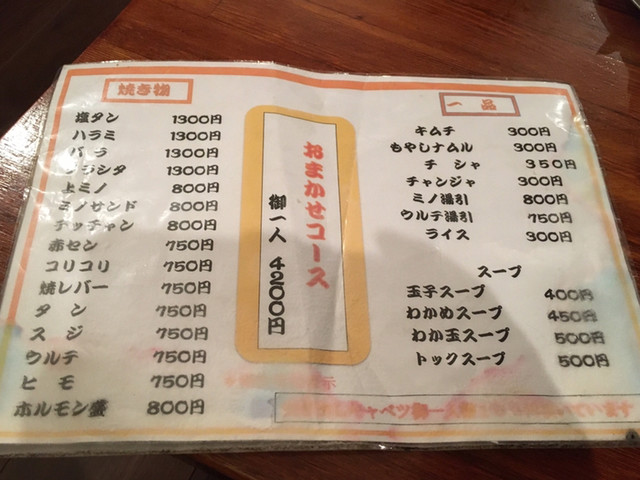 焼き物
塩タン 1300円
ハラミ 1300円
バラ 1300円
ウラシタ 1300円
上ミノ 800円
ミノサンド 800円
テッチャン 800円
赤セン 750円
コリコリ 750円
焼レバー 750円
タン 750円
スジ 750円
ウルテ 750円
ヒモ 750円
ホルモン盛 800円
おまかせコース
御一人 4200円
一品
キムチ 300円
もやしナムル 300円
チシャ 350円
チャンジャ 300円
ミノ湯引 800円
ウルテ湯引 750円
ライス 300円
スープ
玉子スープ 400円
わかめスープ 450円
わか玉スープ 500円
トックスープ 500円
示
キャベツ
います